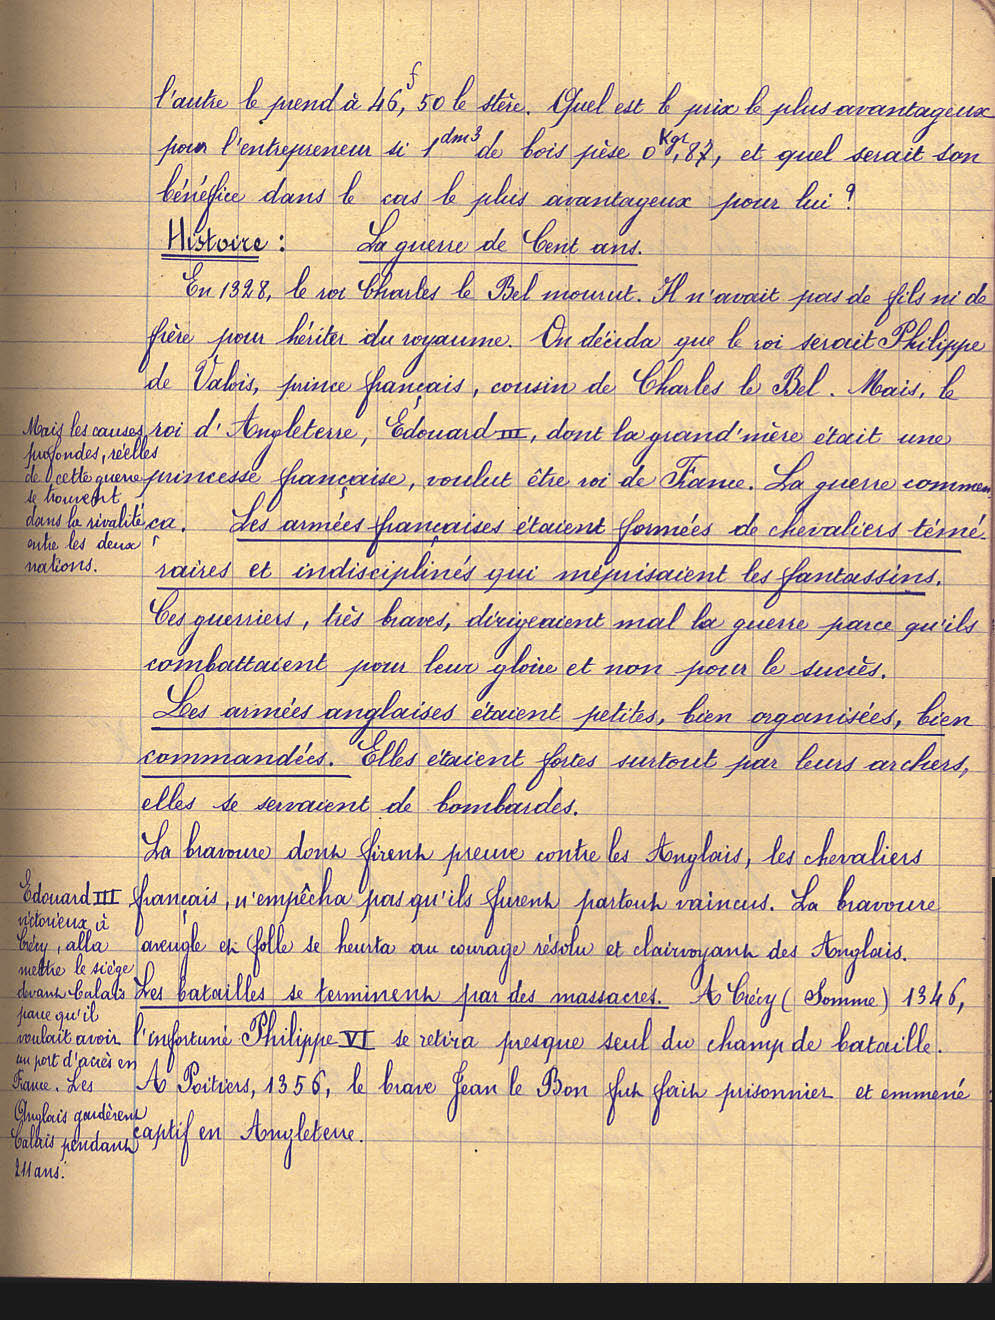 l'autre le prend à 46f,50 le stère. Quel est le prix le plus avantageux
pour l'entrepreneur si 1dm3 de bois pèse 0Kgr,87, et quel serait son
bénéfice dans le cas le plus avantageux pour lui ?
Histoire : La guerre de Cent ans.
En 1328, le roi Charles le Bel mourut. Il n'avait pas de fils ni de
frère pour hériter du royaume. On décida que le roi serait Philippe
de Valois, prince français, cousin de Charles le Bel. Mais, le
roi d'Angleterre, Édouard III, dont la grand'mère était une
princesse française, voulut être roi de France. La guerre commen
ça. Les armées françaises étaient formées de chevaliers témé-
raires et indisciplinés qui méprisaient les fantassins.
Ces guerriers, très braves, dirigeaient mal la guerre parce qu'ils
combattaient pour leur gloire et non pour le succès.
Les armées anglaises étaient petites, bien organisées, bien
commandées. Elles étaient fortes surtout par leurs archers,
elles se servaient de bombardes.
La bravoure dont firent preuve contre les Anglais, les chevaliers
français, n'empêcha pas qu'ils furent partout vaincus. La bravoure
aveugle et folle se heurta au courage résolu et clairvoyant des Anglais.
Les batailles se terminent par des massacres. A Crécy (Somme) 1346,
l'infortuné Philippe VI se retira presque seul du champ de bataille.
A Poitiers, 1356, le brave Jean le Bon fut fait prisonnier et emmené
captif en Angleterre.
Mais les causes
profondes, réelles
de cette guerre
se trouvent
dans la rivalité
entre les deux
nations.
Édouard III
victorieux à
Crécy, alla
mettre le siège
devant Calais
parce qu'il
voulait avoir
un port d'accès en
France. Les
Anglais gardèrent
Calais pendant
211 ans.